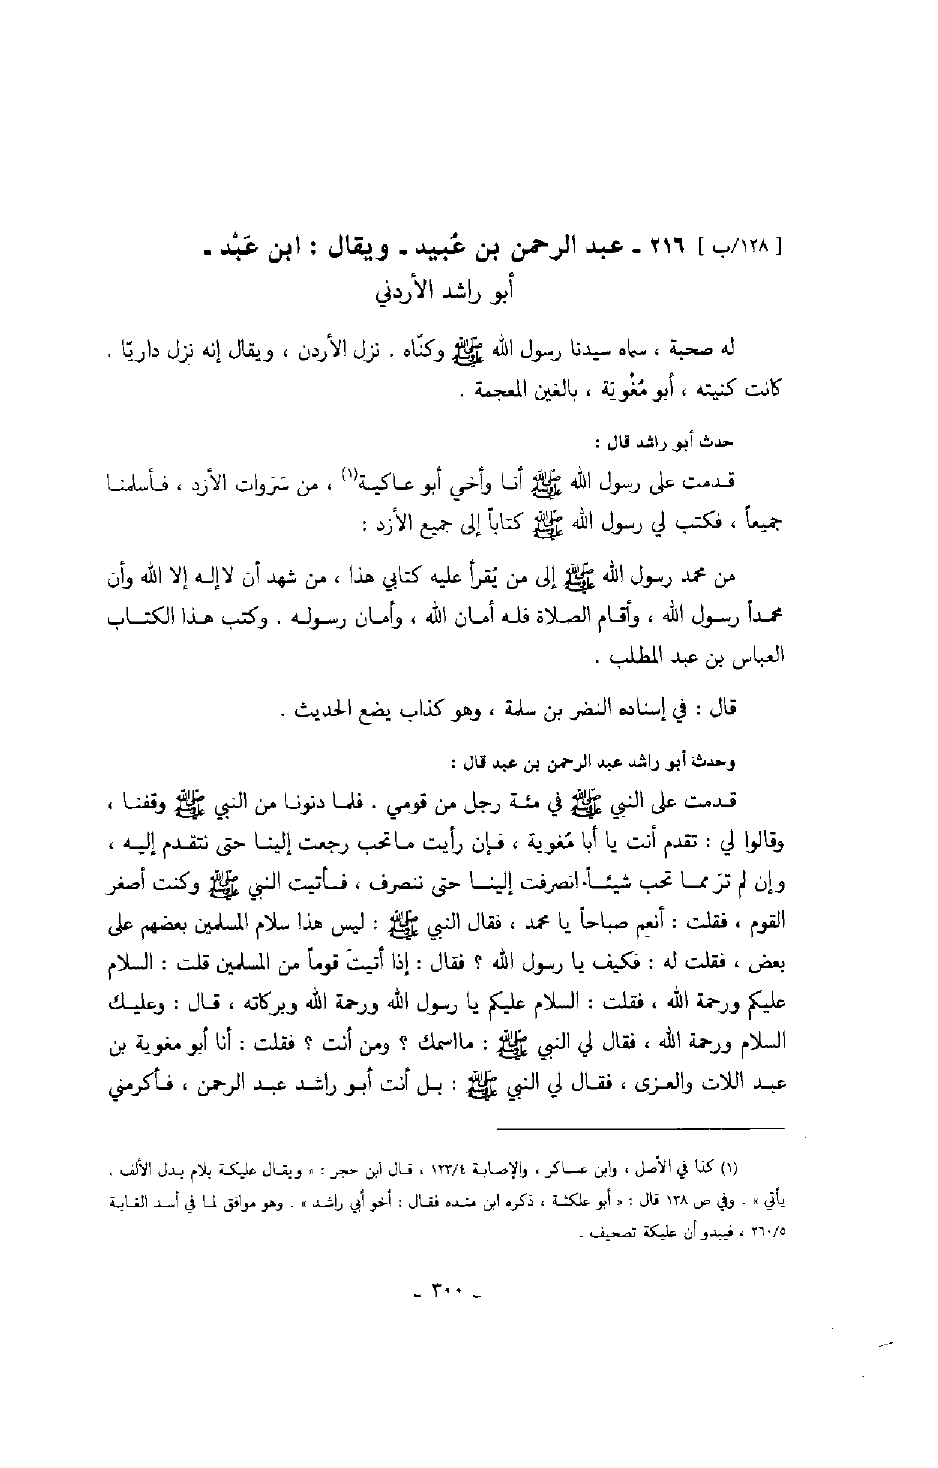 [ ١٢٨/ب ] ٢١٦ ـ عبد الرحمن بن عُبيد ـ ويقال : ابن عَبْد ـ
أبو راشد الأردني
له صحبة ، سماه سيدنا رسول الله ﷺ وكنّاه . نزل الأردن ، ويقال إنه نزل داريّا .
كانت كنيته ، أبو مُغْوِيَة ، بالغين المعجمة .
حدث أبو راشد قال :
قدمت على رسول الله ﷺ أنا وأخي أبو عاكية(١) ، من سَرَوات الأزد ، فأسلمنا
جميعاً ، فكتب لي رسول الله ﷺ كتاباً إلى جميع الأزد :
من محمد رسول الله ﷺ إلى من يُقرأ عليه كتابي هذا ، من شهد أن لاإله إلا الله وأن
محمداً رسول الله ، وأقام الصلاة فله أمان الله ، وأمان رسوله . وكتب هذا الكتاب
العباس بن عبد المطلب .
قال : في إسناده النضر بن سلمة ، وهو كذاب يضع الحديث .
وحدث أبو راشد عبد الرحمن بن عبد قال :
قدمت على النبي ﷺ في مئة رجل من قومي . فلما دنونا من النبي ﷺ وقفنا ،
وقالوا لي : تقدم أنت يا أبا مُغوية ، فإن رأيت ماتحب رجعت إلينا حتى نتقدم إليه ،
وإن لم ترَ مما تحب شيئاً انصرفت إلينا حتى ننصرف ، فأتيت النبي ﷺ وكنت أصغر
القوم ، فقلت : أنعِم صباحاً يا محمد ، فقال النبي ﷺ : ليس هذا سلام المسلمين بعضهم على
بعض ، فقلت له : فكيف يا رسول الله ؟ فقال : إذا أتيتَ قوماً من المسلمين قلت : السلام
عليكم ورحمة الله ، فقلت : السلام عليكم يا رسول الله ورحمة الله وبركاته ، قال : وعليك
السلام ورحمة الله ، فقال لي النبي ﷺ : مااسمك ؟ ومن أنت ؟ فقلت : أنا أبو مغوية بن
عبد اللات والعزى ، فقال لي النبي ﷺ : بل أنت أبو راشد عبد الرحمن ، فأكرمني
(١) كذا في الأصل ، وابن عساكر ، والإصابة ١٢٣/٤ ، قال ابن حجر : « ويقال عليكة بلام بدل الألف .
يأتي » . وفي ص ١٣٨ قال : « أبو علكثة ، ذكره ابن منده فقال : أخو أبي راشد » . وهو موافق لما في أسد الغابة
٢٦٠/٥ ، فيبدو أن عليكة تصحيف .
ـ ٣٠٠ ـ